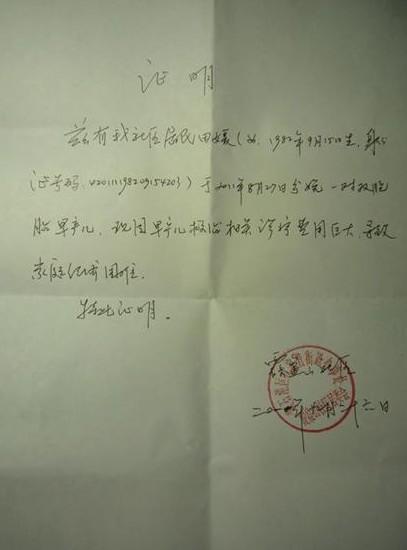 证明
兹有我社区居民田媛（女，1982年9月15日生，身份
证号码：）于2011年8月27日分娩一对双胞
胎早产儿，现因早产儿救治相关诊疗费用巨大，导致
家庭经济困难。
特此证明。
社区
二〇一一年 月二十六日